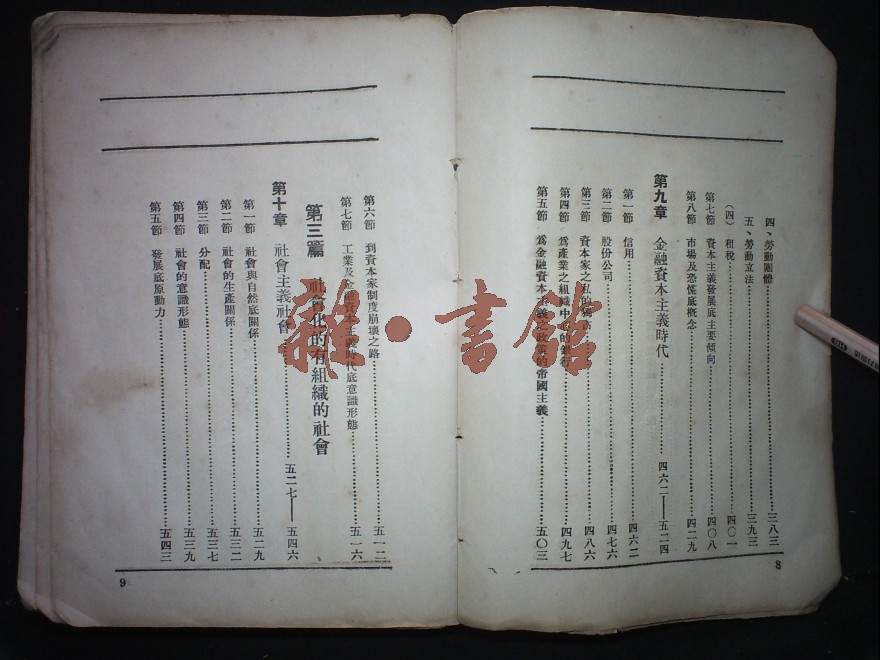 四、勞動團體……三八三
五、勞動立法……三九三
(四) 租稅……四〇一
第七節 資本主義發展底主要傾向……四〇八
第八節 市場及恐慌底概念……四二九
第九章 金融資本主義時代……四六二——五二四
第一節 信用……四六二
第二節 股份公司……四七六
第三節 資本家之私的獨占……四八六
第四節 爲產業之組織中心的銀行……四九七
第五節 爲金融資本主義之政策的帝國主義……五〇三
8
第六節 到資本家制度崩壞之路……五一二
第七節 工業及金融資本主義時代底意識形態……五一六
第三篇 社會化的有組織的社會
第十章 社會主義社會……五二七——五四六
第一節 社會與自然底關係……五二九
第二節 社會的生產關係……五三二
第三節 分配……五三七
第四節 社會的意識形態……五三九
第五節 發展底原動力……五四三
9
雜·書館